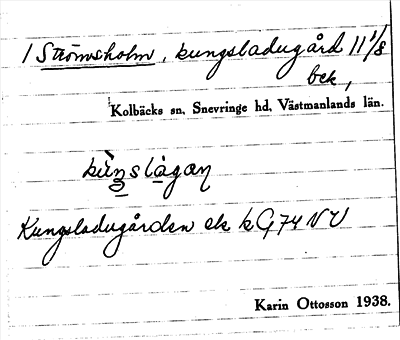 / Strömsholm, kungsladugård 11 1/8
bek,
Kolbäcks sn, Snevringe hd, Västmanlands län.
Kungsladugården ek k G74 NV
Karin Ottosson 1938.